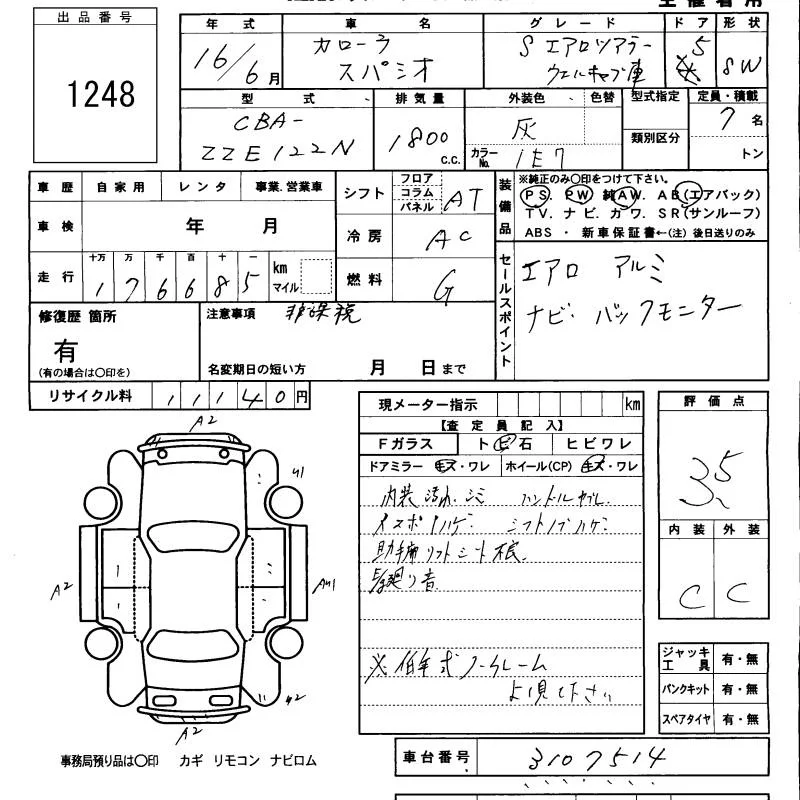 出品番号
1248
年式 車名 グレード ドア 形状
16/6月 カローラ スパシオ S エアロツアラー ウェルキャブ車 5 SW
型式 排気量 外装色 色替 型式指定 定員・積載
CBA-
ZZE122N 1800 C.C. 灰 類別区分 7名
カラーNo. 1E7 トン
車歴 自家用 レンタ 事業.営業車
シフト フロア コラム パネル AT
装備品 ※純正のみ○印をつけて下さい。
PS. PW 純AW. AB(エアバック)
TV. ナビ. カワ. SR(サンルーフ)
ABS ・ 新車保証書←(注) 後日送りのみ
車検 年 月
冷房 AC
走行 十万 万 千 百 十 一
176685 km マイル
燃料 G
セールスポイント エアロ アルミ
ナビ. バックモニター
修復歴 箇所
有
(有の場合は○印を)
注意事項 非課税
名変期日の短い方 月 日まで
リサイクル料 11140円
現メーター指示 km
【査定員記入】
Fガラス トビ石 ヒビワレ
ドアミラー キズ・ワレ ホイール(CP) キズ・ワレ
内装 汚れ.シミ ハンドルスレ.
シフトノブハゲ.
助手席リフトシート
※低年式ノークレーム
よく見て下さい
評価点
3.5
内装 外装
C C
ジャッキ工具 有・無
パンクキット 有・無
スペアタイヤ 有・無
A2
A2
A2
事務局預り品は○印 カギ リモコン ナビロム
車台番号 3107514